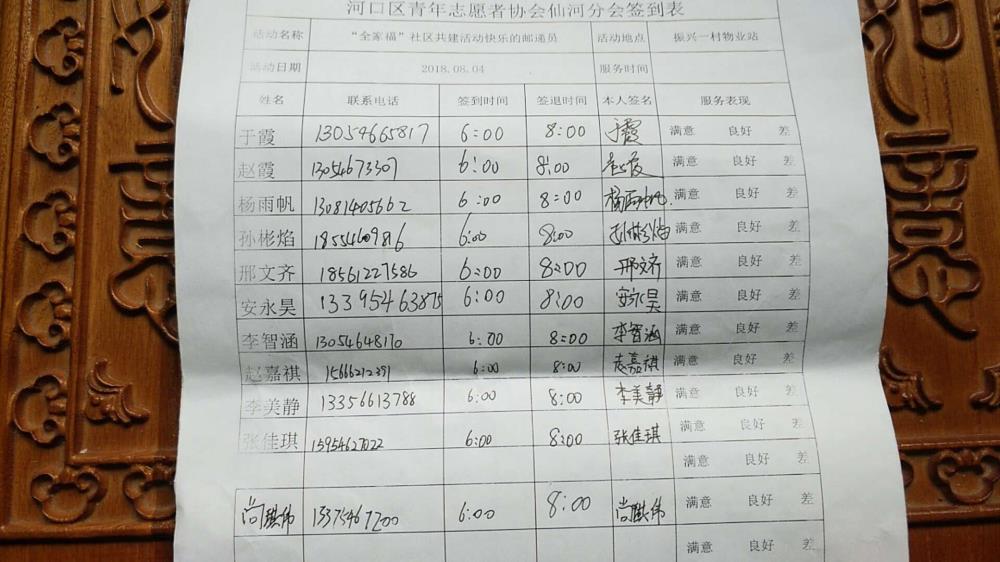 河口区青年志愿者协会仙河分会签到表
活动名称 “全家福”社区共建活动快乐的邮递员 活动地点 振兴一村物业站
活动日期 2018.08.04 服务时间
姓名 联系电话 签到时间 签退时间 本人签名 服务表现
于霞 13054665817 6:00 8:00 于霞 满意 良好 差
赵霞 13054673307 6:00 8:00 赵霞 满意 良好 差
杨雨帆 13081405662 6:00 8:00 杨雨帆 满意 良好 差
孙彬焰 18554609816 6:00 8:00 孙彬焰 满意 良好 差
邢文齐 18561227586 6:00 8:00 邢文齐 满意 良好 差
安永昊 13395463875 6:00 8:00 安永昊 满意 良好 差
李智涵 13054648170 6:00 8:00 李智涵 满意 良好 差
赵嘉祺 15666212391 6:00 8:00 赵嘉祺 满意 良好 差
李美静 13356613788 6:00 8:00 李美静 满意 良好 差
张佳琪 15954627022 6:00 8:00 张佳琪 满意 良好 差
满意 良好 差
尚麒伟 13375467200 6:00 8:00 尚麒伟 满意 良好 差
满意 良好 差